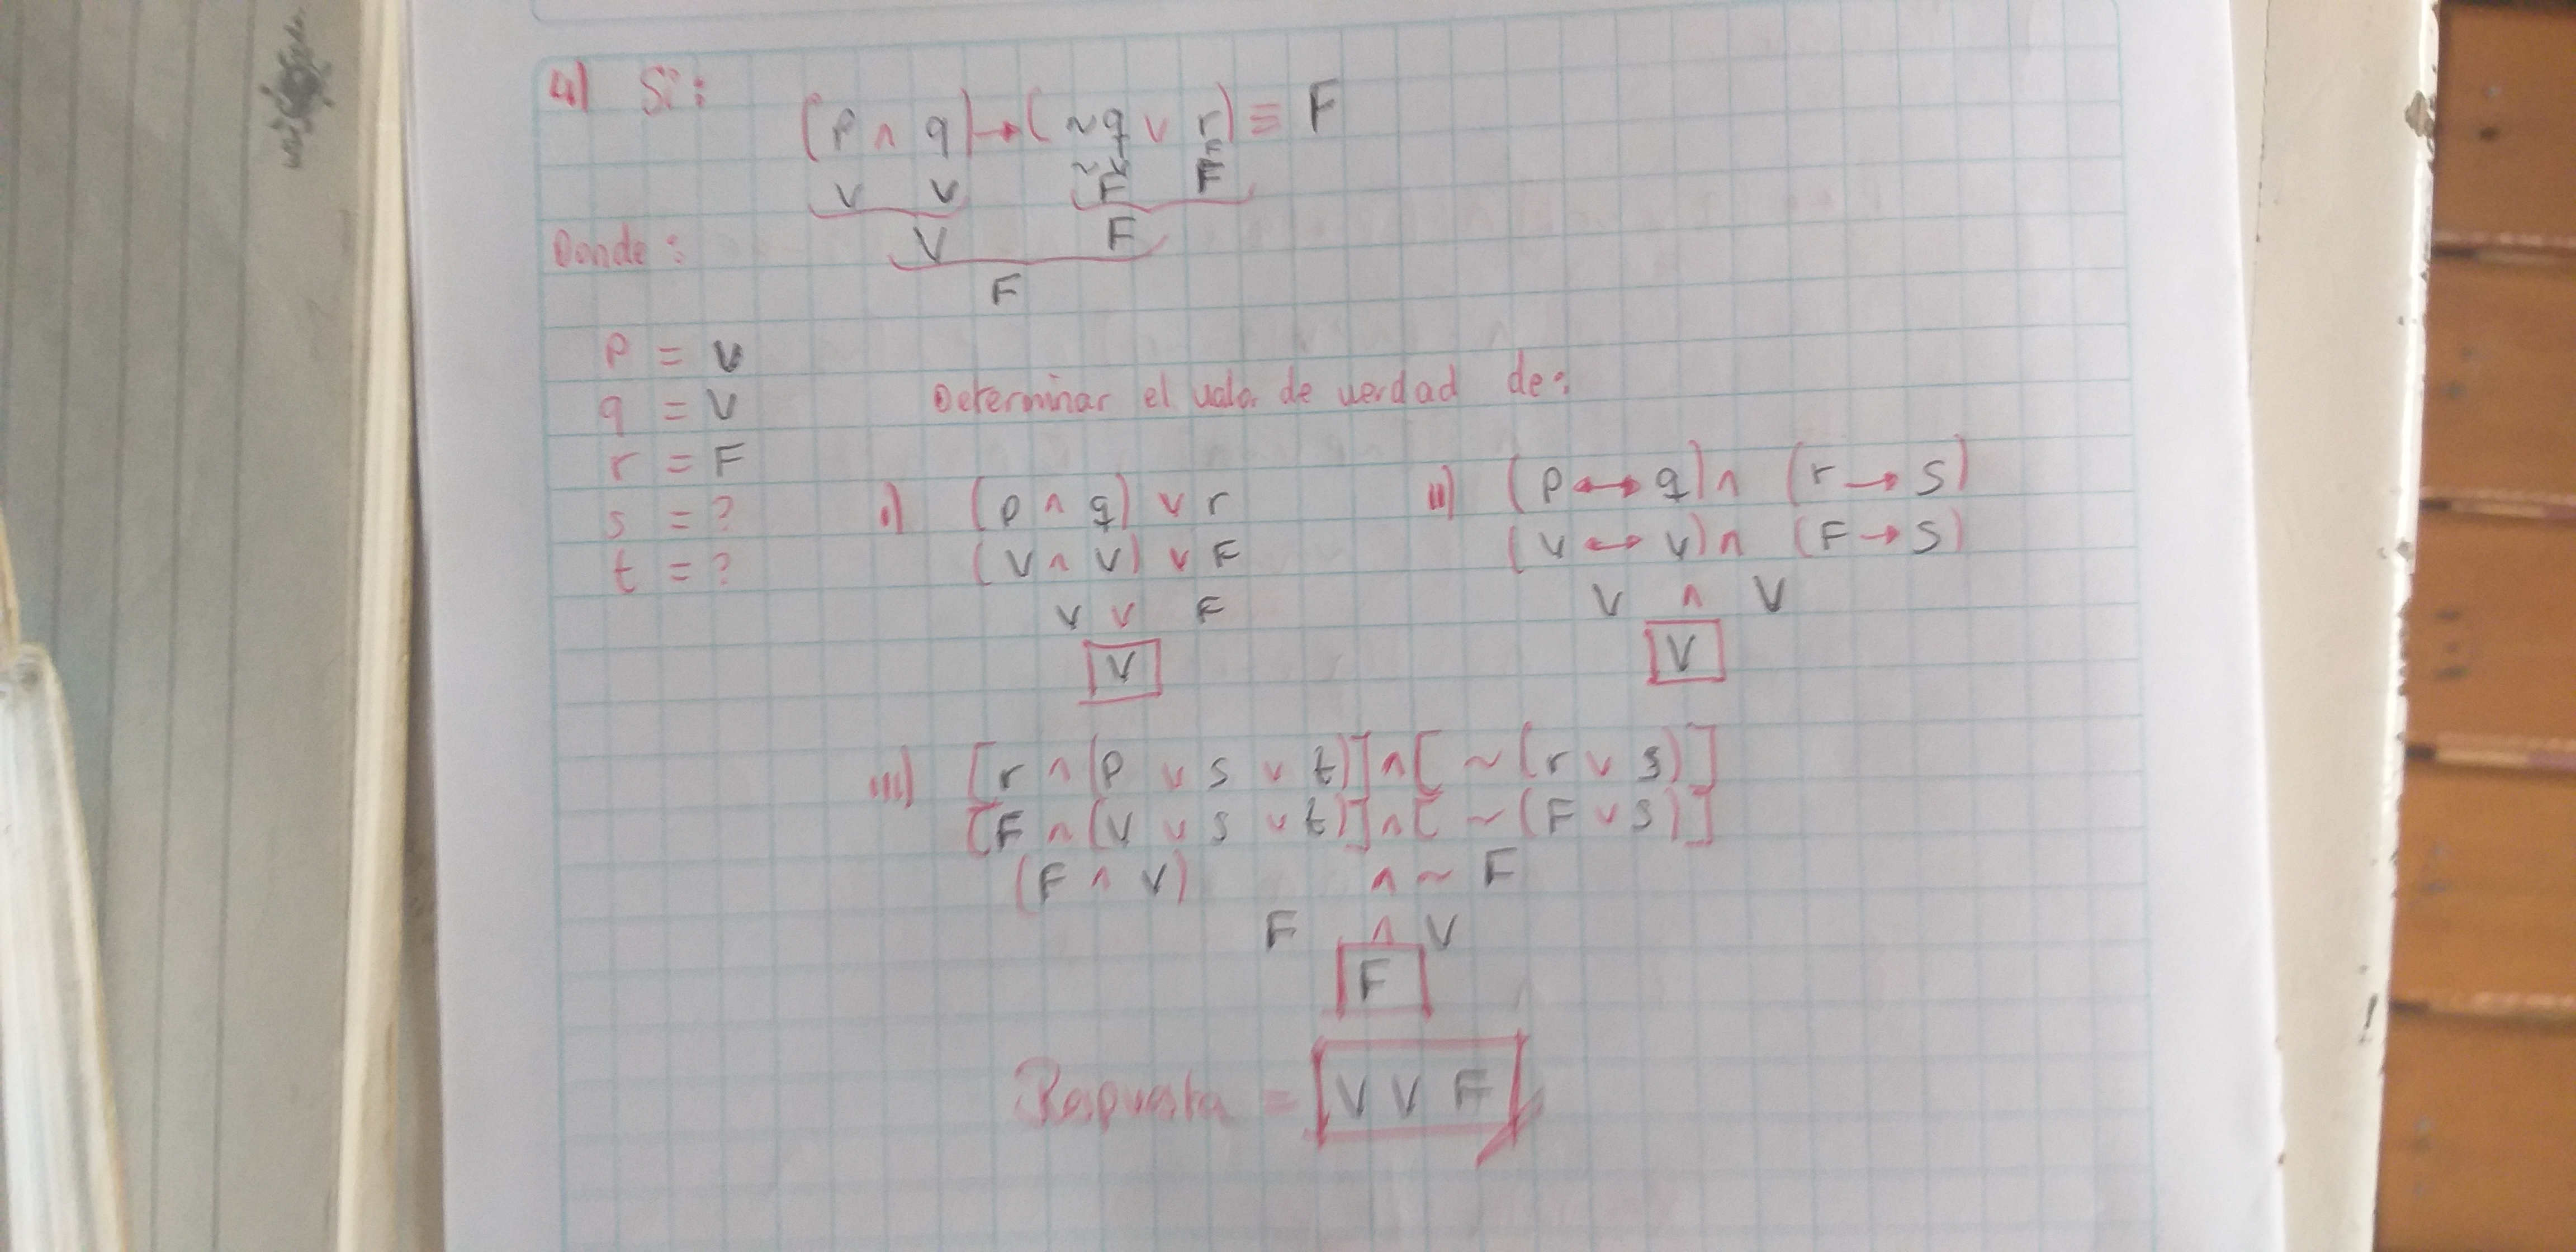 4) Si:
(p ∧ q) → (~q ∨ r) ≡ F
V V F F
V F
Donde:
F
p = V
q = V
r = F
s = ?
t = ?
Determinar el valor de verdad de:
i) (p ∧ q) ∨ r
(V ∧ V) ∨ F
V ∨ F
V
ii) (p ↔ q) ∧ (r → s)
(V ↔ V) ∧ (F → s)
V ∧ V
V
iii) [r ∧ (p ∨ s ∨ t)] ∧ [~(r ∨ s)]
[F ∧ (V ∨ s ∨ t)] ∧ [~(F ∨ s)]
(F ∧ V) ∧ ~ F
F ∧ V
F
Respuesta = V V F